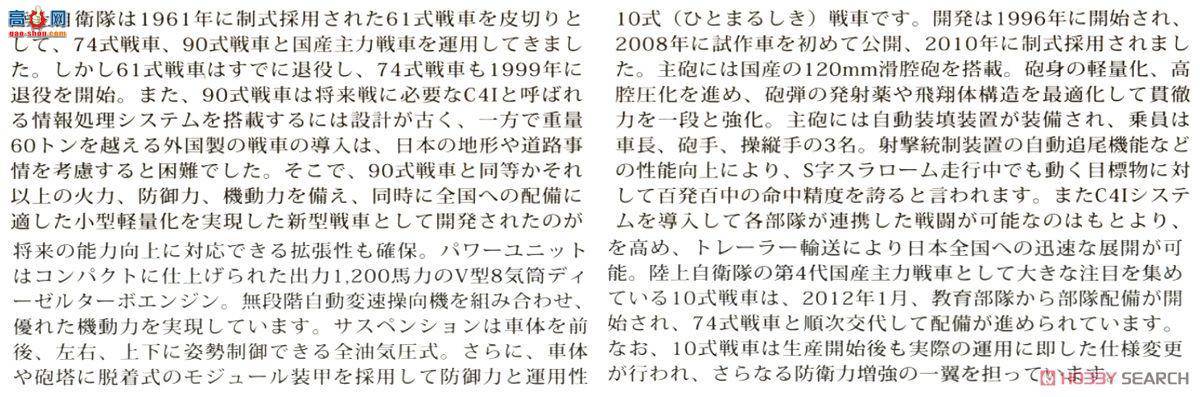 自衛隊は1961年に制式採用された61式戦車を皮切りと
して、74式戦車、90式戦車と国産主力戦車を運用してきまし
た。しかし61式戦車はすでに退役し、74式戦車も1999年に
退役を開始。また、90式戦車は将来戦に必要なC4Iと呼ばれ
る情報処理システムを搭載するには設計が古く、一方で重量
60トンを越える外国製の戦車の導入は、日本の地形や道路事
情を考慮すると困難でした。そこで、90式戦車と同等かそれ
以上の火力、防御力、機動力を備え、同時に全国への配備に
適した小型軽量化を実現した新型戦車として開発されたのが
10式（ひとまるしき）戦車です。開発は1996年に開始され、
2008年に試作車を初めて公開、2010年に制式採用されまし
た。主砲には国産の120mm滑腔砲を搭載。砲身の軽量化、高
腔圧化を進め、砲弾の発射薬や飛翔体構造を最適化して貫徹
力を一段と強化。主砲には自動装填装置が装備され、乗員は
車長、砲手、操縦手の3名。射撃統制装置の自動追尾機能など
の性能向上により、S字スラローム走行中でも動く目標物に対
して百発百中の命中精度を誇ると言われます。またC4Iシステ
ムを導入して各部隊が連携した戦闘が可能なのはもとより、
将来の能力向上に対応できる拡張性も確保。パワーユニット
はコンパクトに仕上げられた出力1,200馬力のV型8気筒ディ
ーゼルターボエンジン。無段階自動変速操向機を組み合わせ、
優れた機動力を実現しています。サスペンションは車体を前
後、左右、上下に姿勢制御できる全油気圧式。さらに、車体
や砲塔に脱着式のモジュール装甲を採用して防御力と運用性
を高め、トレーラー輸送により日本全国への迅速な展開が可
能。陸上自衛隊の第4代国産主力戦車として大きな注目を集め
ている10式戦車は、2012年1月、教育部隊から部隊配備が開
始され、74式戦車と順次交代して配備が進められています。
なお、10式戦車は生産開始後も実際の運用に即した仕様変更
が行われ、さらなる防衛力増強の一翼を担っています。
HOBBY SEARCH